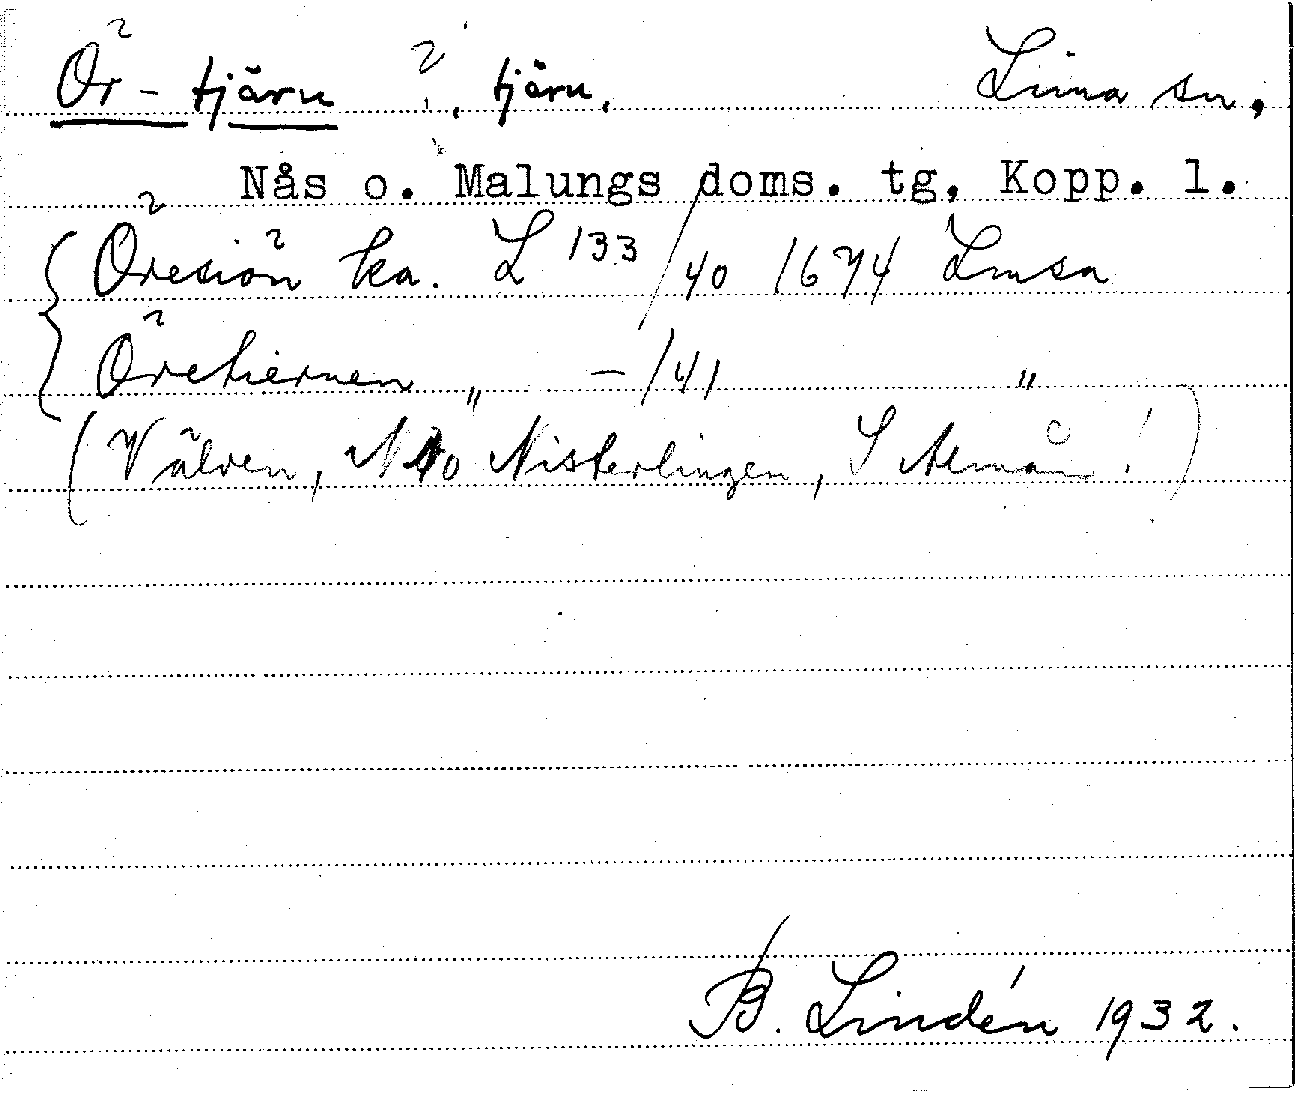 Ör-tjärn ?, tjärn. Lima sn.
Nås o. Malungs doms. tg. Kopp. l.
Öresiön ka. L 133/40 1674 Lmsa
Öretiernen " —/41 "
(V älven, NNO Nisterlingen, S Almån!)
B. Lindén 1932.